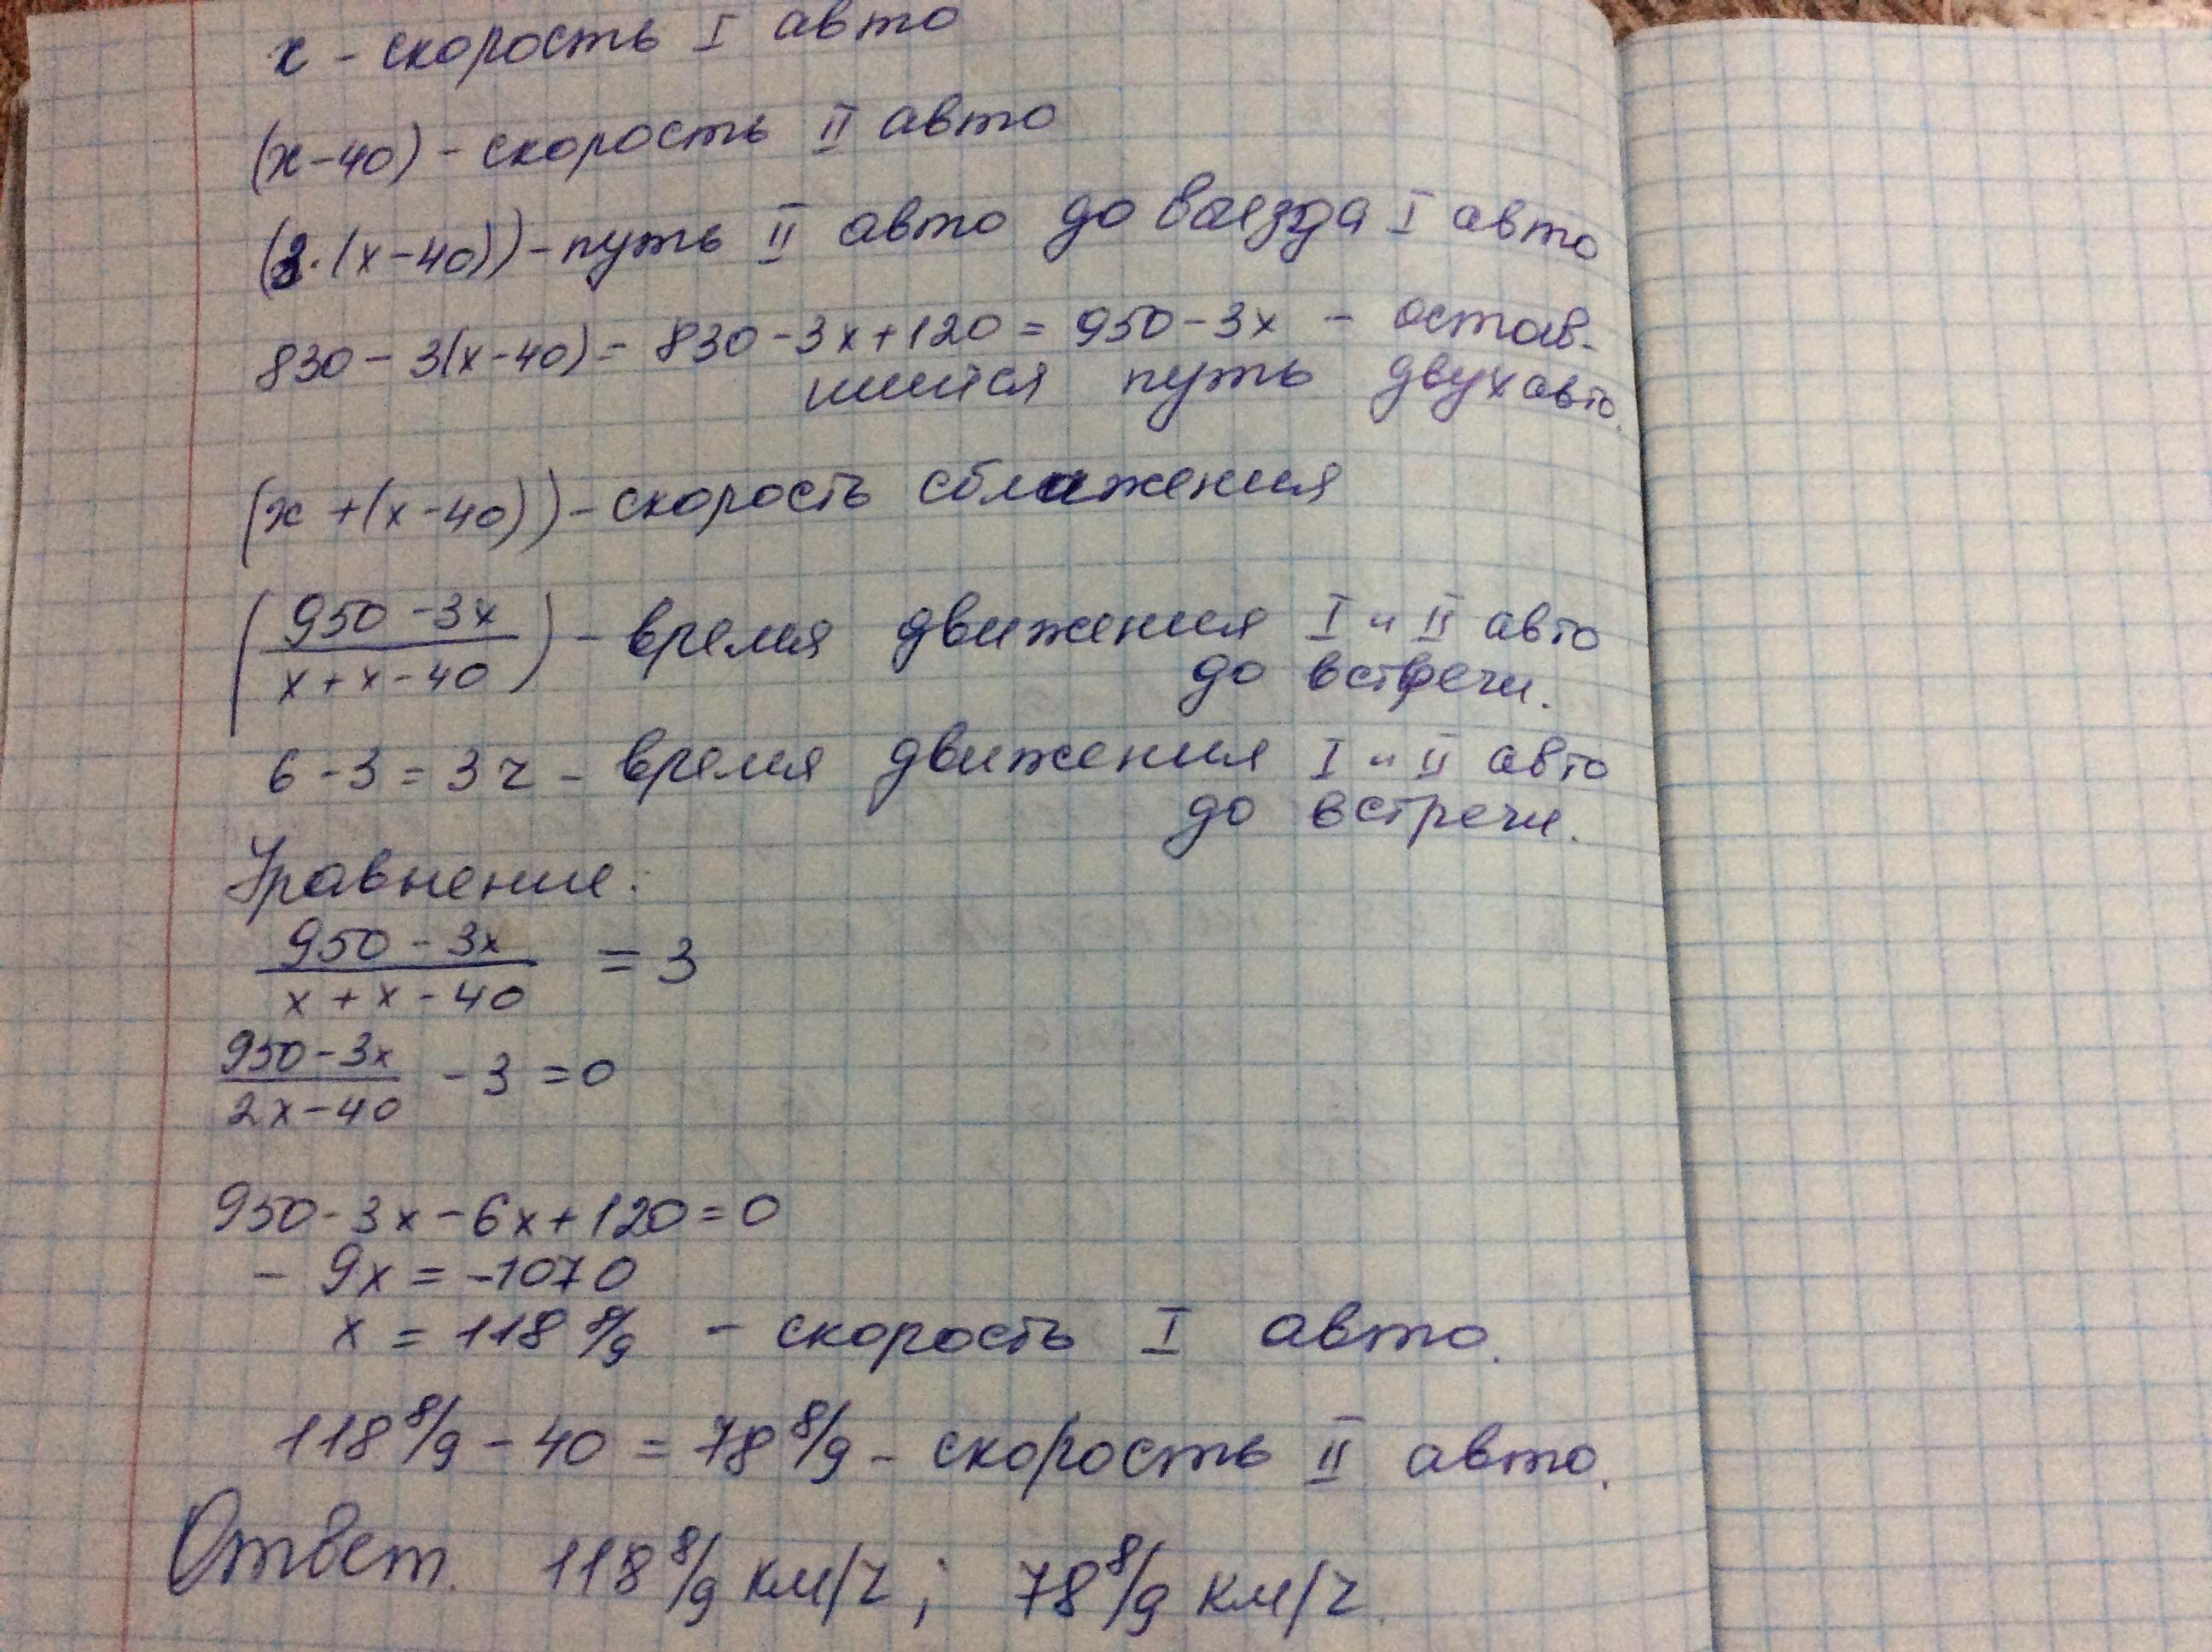 x - скорость I авто
(x-40) - скорость II авто
(3·(x-40)) - путь II авто до выезда I авто
830 - 3(x-40) = 830 - 3x + 120 = 950 - 3x - остав-
шийся путь двух авто.
(x + (x-40)) - скорость сближения
(950 - 3x / x + x - 40) - время движения I и II авто
до встречи.
6 - 3 = 3 ч - время движения I и II авто
до встречи.
Уравнение:
950 - 3x / x + x - 40 = 3
950 - 3x / 2x - 40 - 3 = 0
950 - 3x - 6x + 120 = 0
- 9x = -1070
x = 118 8/9 - скорость I авто.
118 8/9 - 40 = 78 8/9 - скорость II авто.
Ответ. 118 8/9 км/ч; 78 8/9 км/ч.